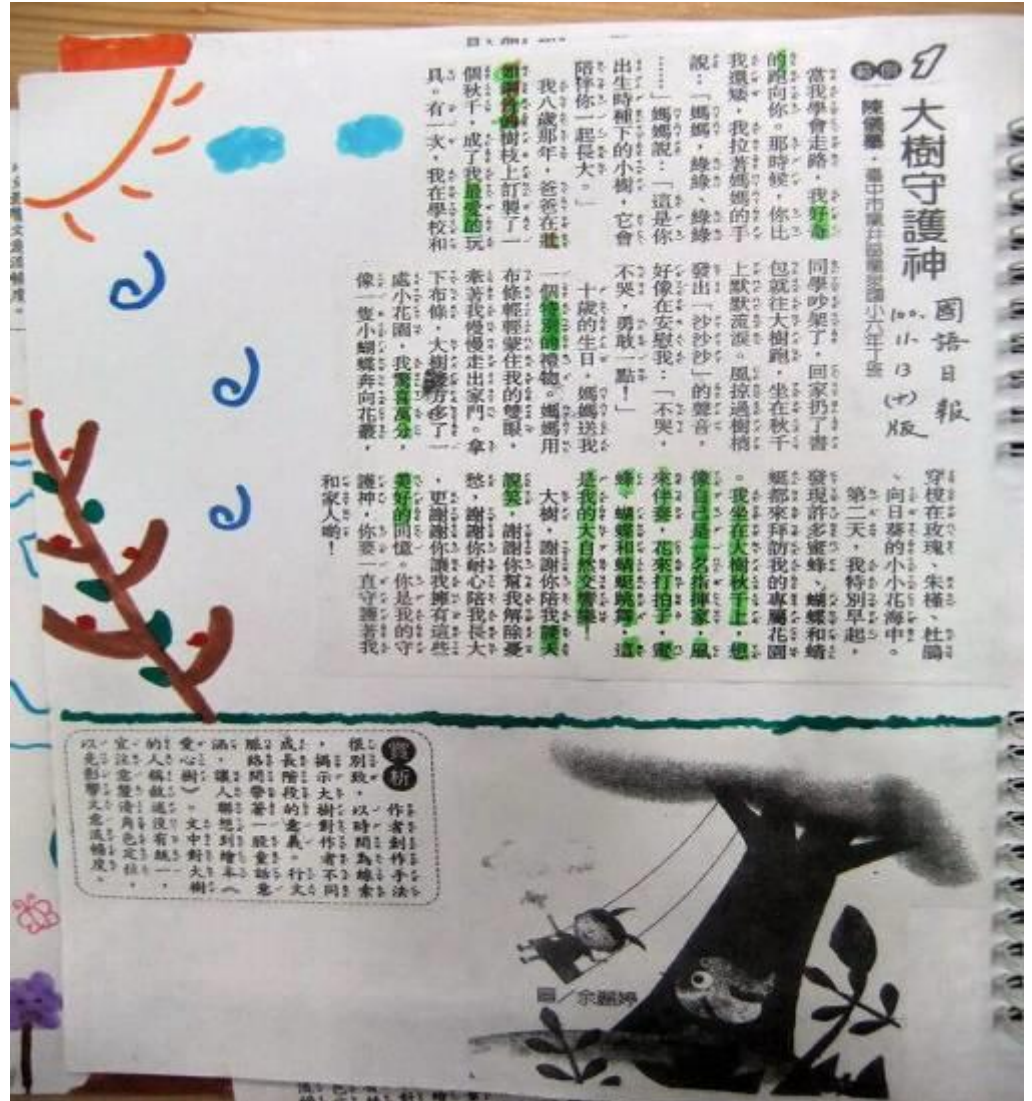 1
大樹守護神
陳儀
臺中市
國小六年丁班
國語日報
100.11.13
(十)版
當我學會走路，我好奇
的跑向你。那時候，你比
我還矮，我拉著媽媽的手
說：「媽媽，綠綠、綠綠
……」媽媽說：「這是你
出生時種下的小樹，它會
陪伴你一起長大。」
我八歲那年，爸爸在壯
樹枝上訂製了一
個秋千，成了我最愛的玩
具。有一次，我在學校和
同學吵架了，回家扔了書
包就往大樹跑，坐在秋千
上默默流淚。風掠過樹梢
發出「沙沙沙」的聲音，
好像在安慰我：「不哭，
不哭，勇敢一點！」
十歲的生日，媽媽送我
一個特別的禮物。媽媽用
布條輕輕蒙住我的雙眼，
牽著我慢慢走出家門。拿
下布條，大樹後方多了一
處小花園，我驚喜萬分，
像一隻小蝴蝶奔向花叢，
穿梭在玫瑰、朱槿、杜鵑
、向日葵的小小花海中。
第二天，我特別早起，
發現許多蜜蜂、蝴蝶和蜻
蜓都來拜訪我的專屬花園
。我坐在大樹秋千上，想
像自己是一名指揮家，風
來伴奏，花來打拍子，蜜
蜂、蝴蝶和蜻蜓跳舞，這
是我的大自然交響樂！
大樹，謝謝你陪我談天
說笑，謝謝你幫我解除憂
愁，謝謝你耐心陪我長大
，更謝謝你讓我擁有這些
美好的回憶。你是我的守
護神，你要一直守護著我
和家人喲！
賞析
作者創作手法
很別致，以時間為線索
，揭示大樹對作者不同
成長階段的意義。行文
脈絡間帶著一股童話意
涵，讓人聯想到繪本《
愛心樹》。文中對大樹
的人稱敘述沒有統一，
宜注意釐清角色定位，
以免影響文意流暢度。
圖／余麗婷